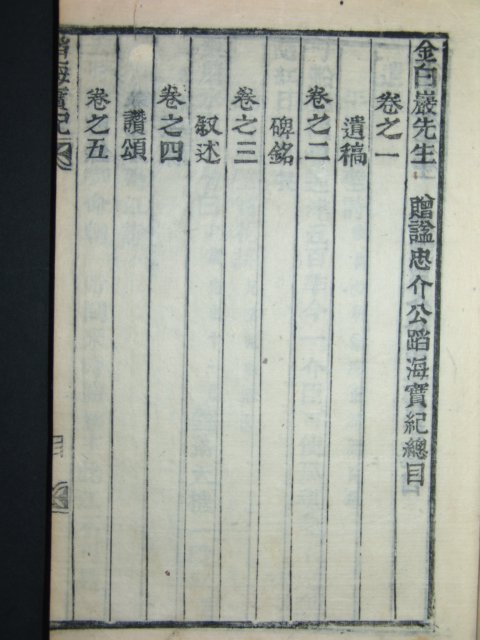 金白巖先生 贈諡忠介公蹈海寶紀總目
卷之一
遺稿
卷之二
碑銘
卷之三
叙述
卷之四
讚頌
卷之五
海寶紀
目